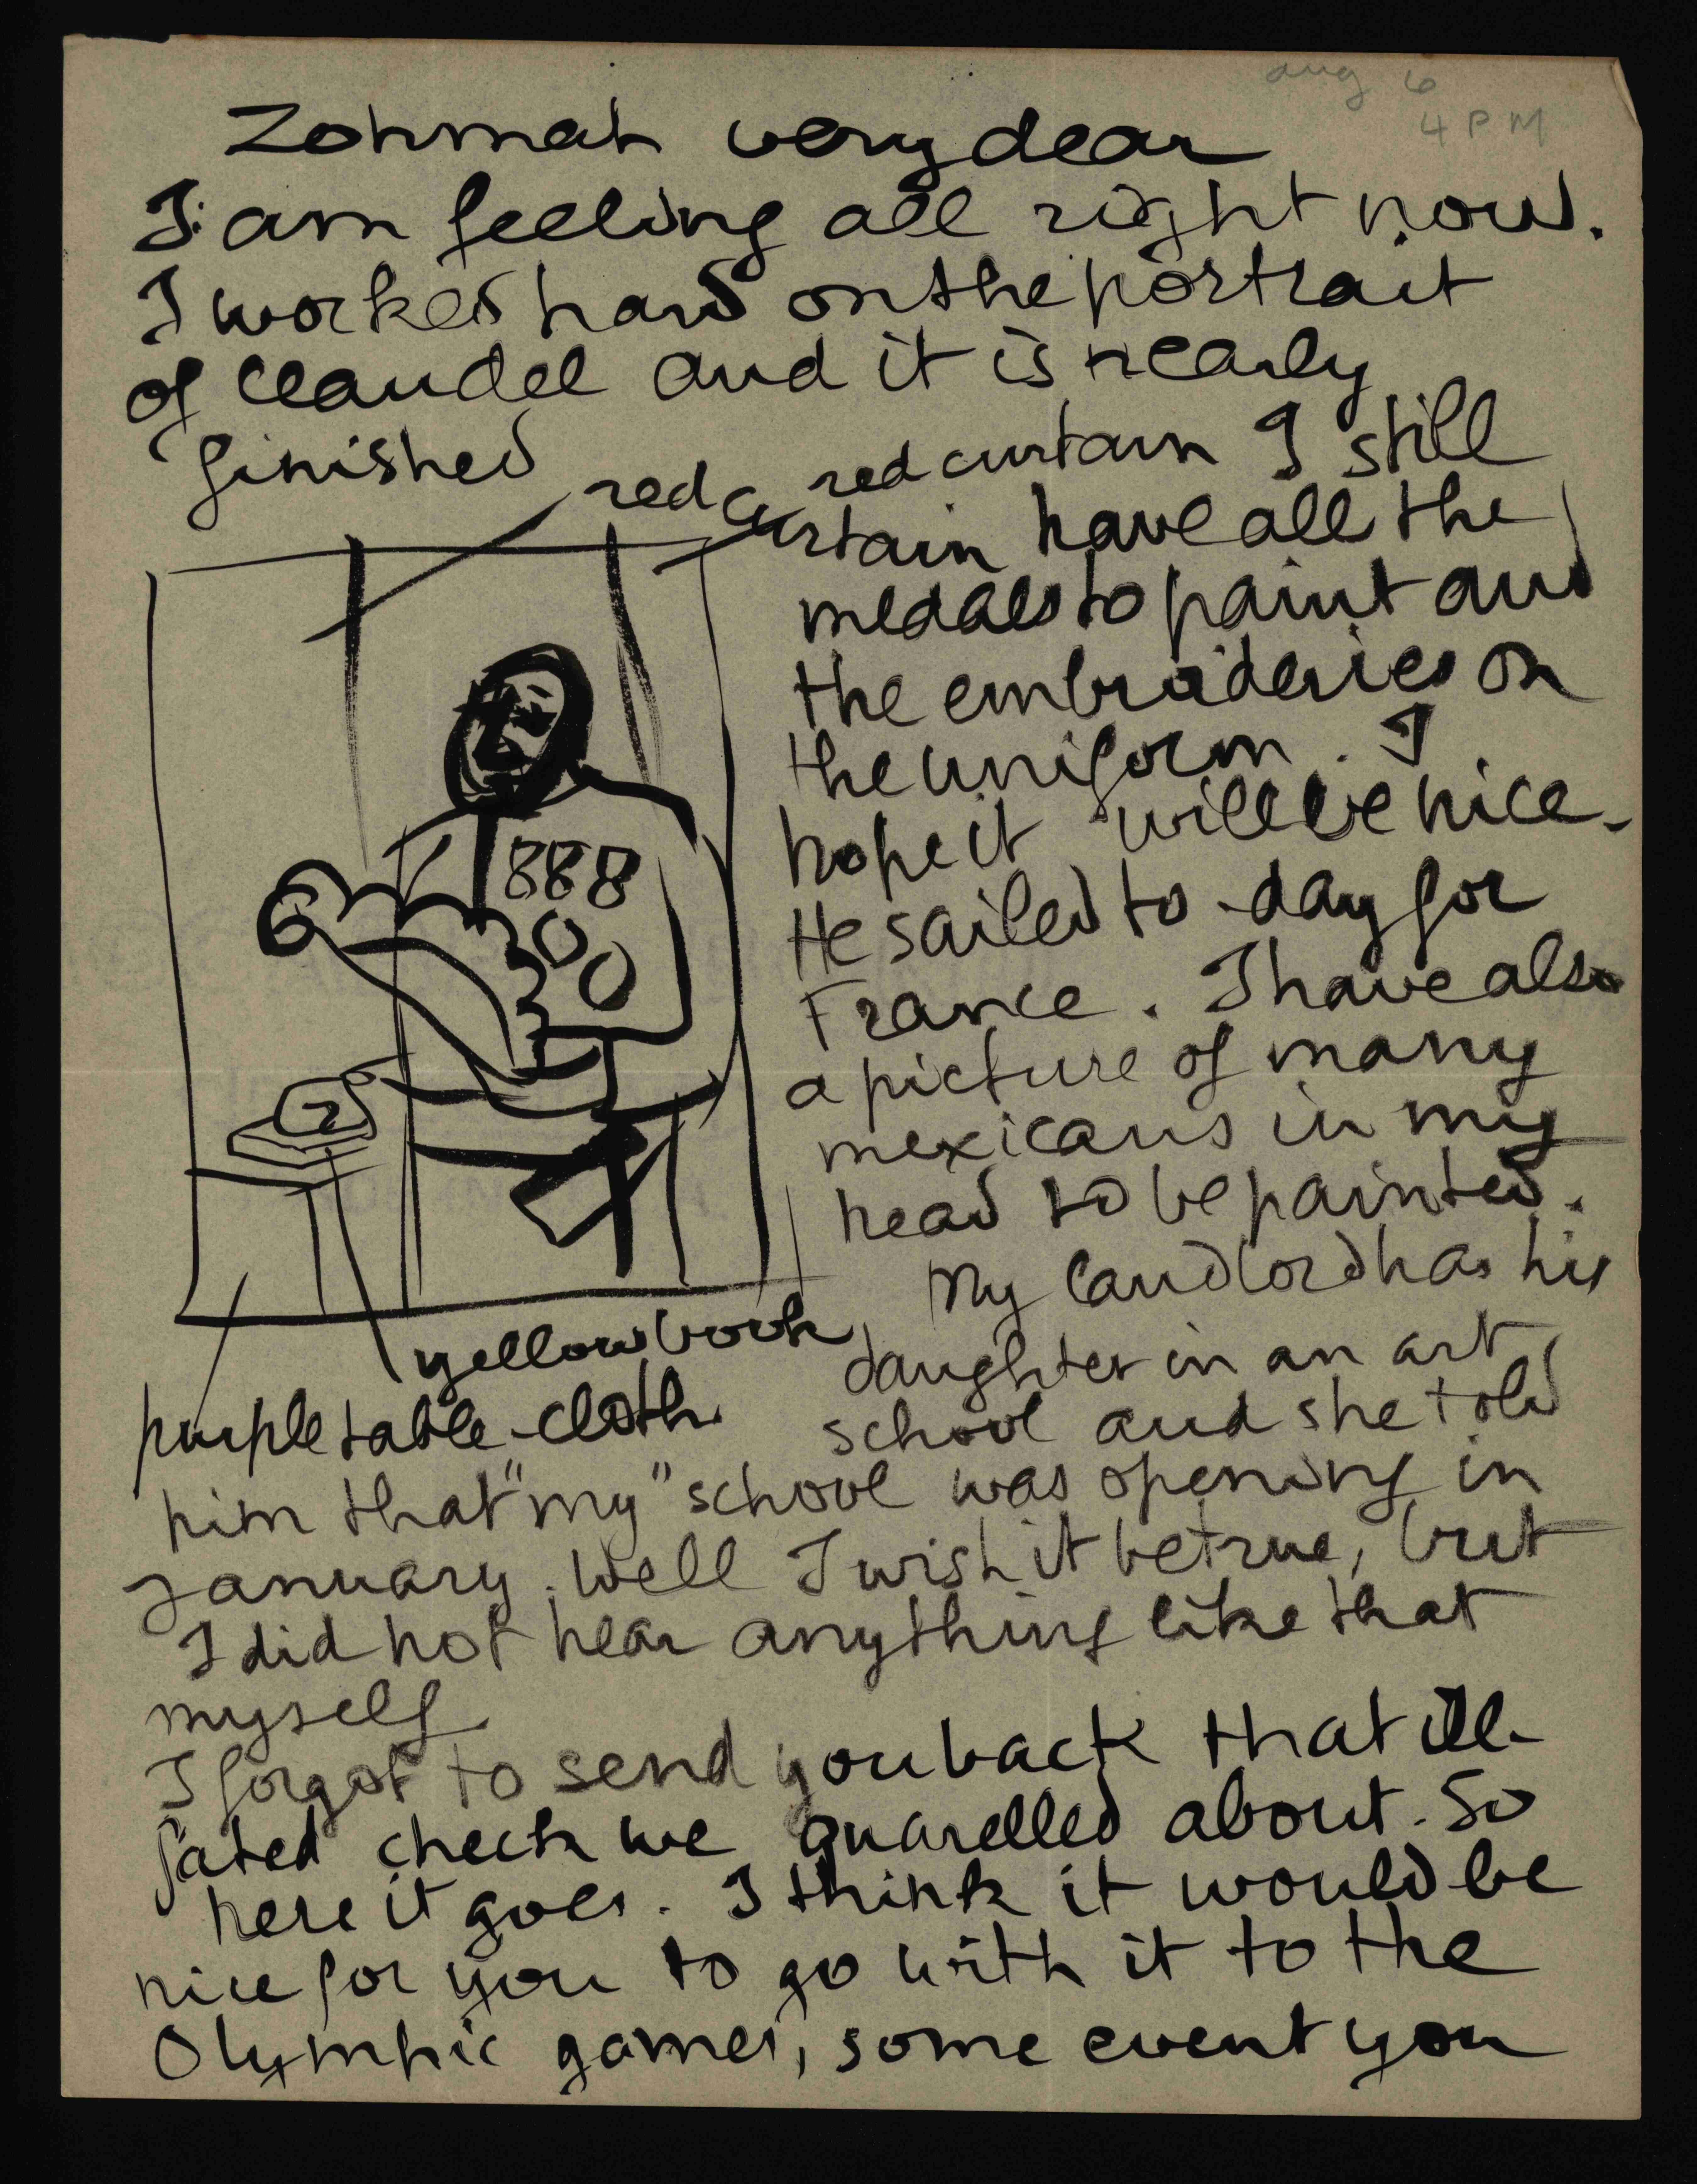 aug 6
4 PM
Zohmah very dear
I am feeling all right now.
I worked hard on the portrait
of Claudel and it is nearly
finished
red curtain
red curtain
I still
have all the
medals to paint and
the embroideries on
the uniform. I
hope it will be nice.
He sailed to-day for
France. I have also
a picture of many
mexicans in my
head to be painted.
My landlord has his
yellow book
daughter in an art
purple table-cloth
school and she told
him that "my" school was opening in
January. Well I wish it be true, but
I did not hear anything like that
myself
I forgot to send you back that ill-
fated check we quarelled about. So
here it goes. I think it would be
nice for you to go with it to the
Olympic games, some event you